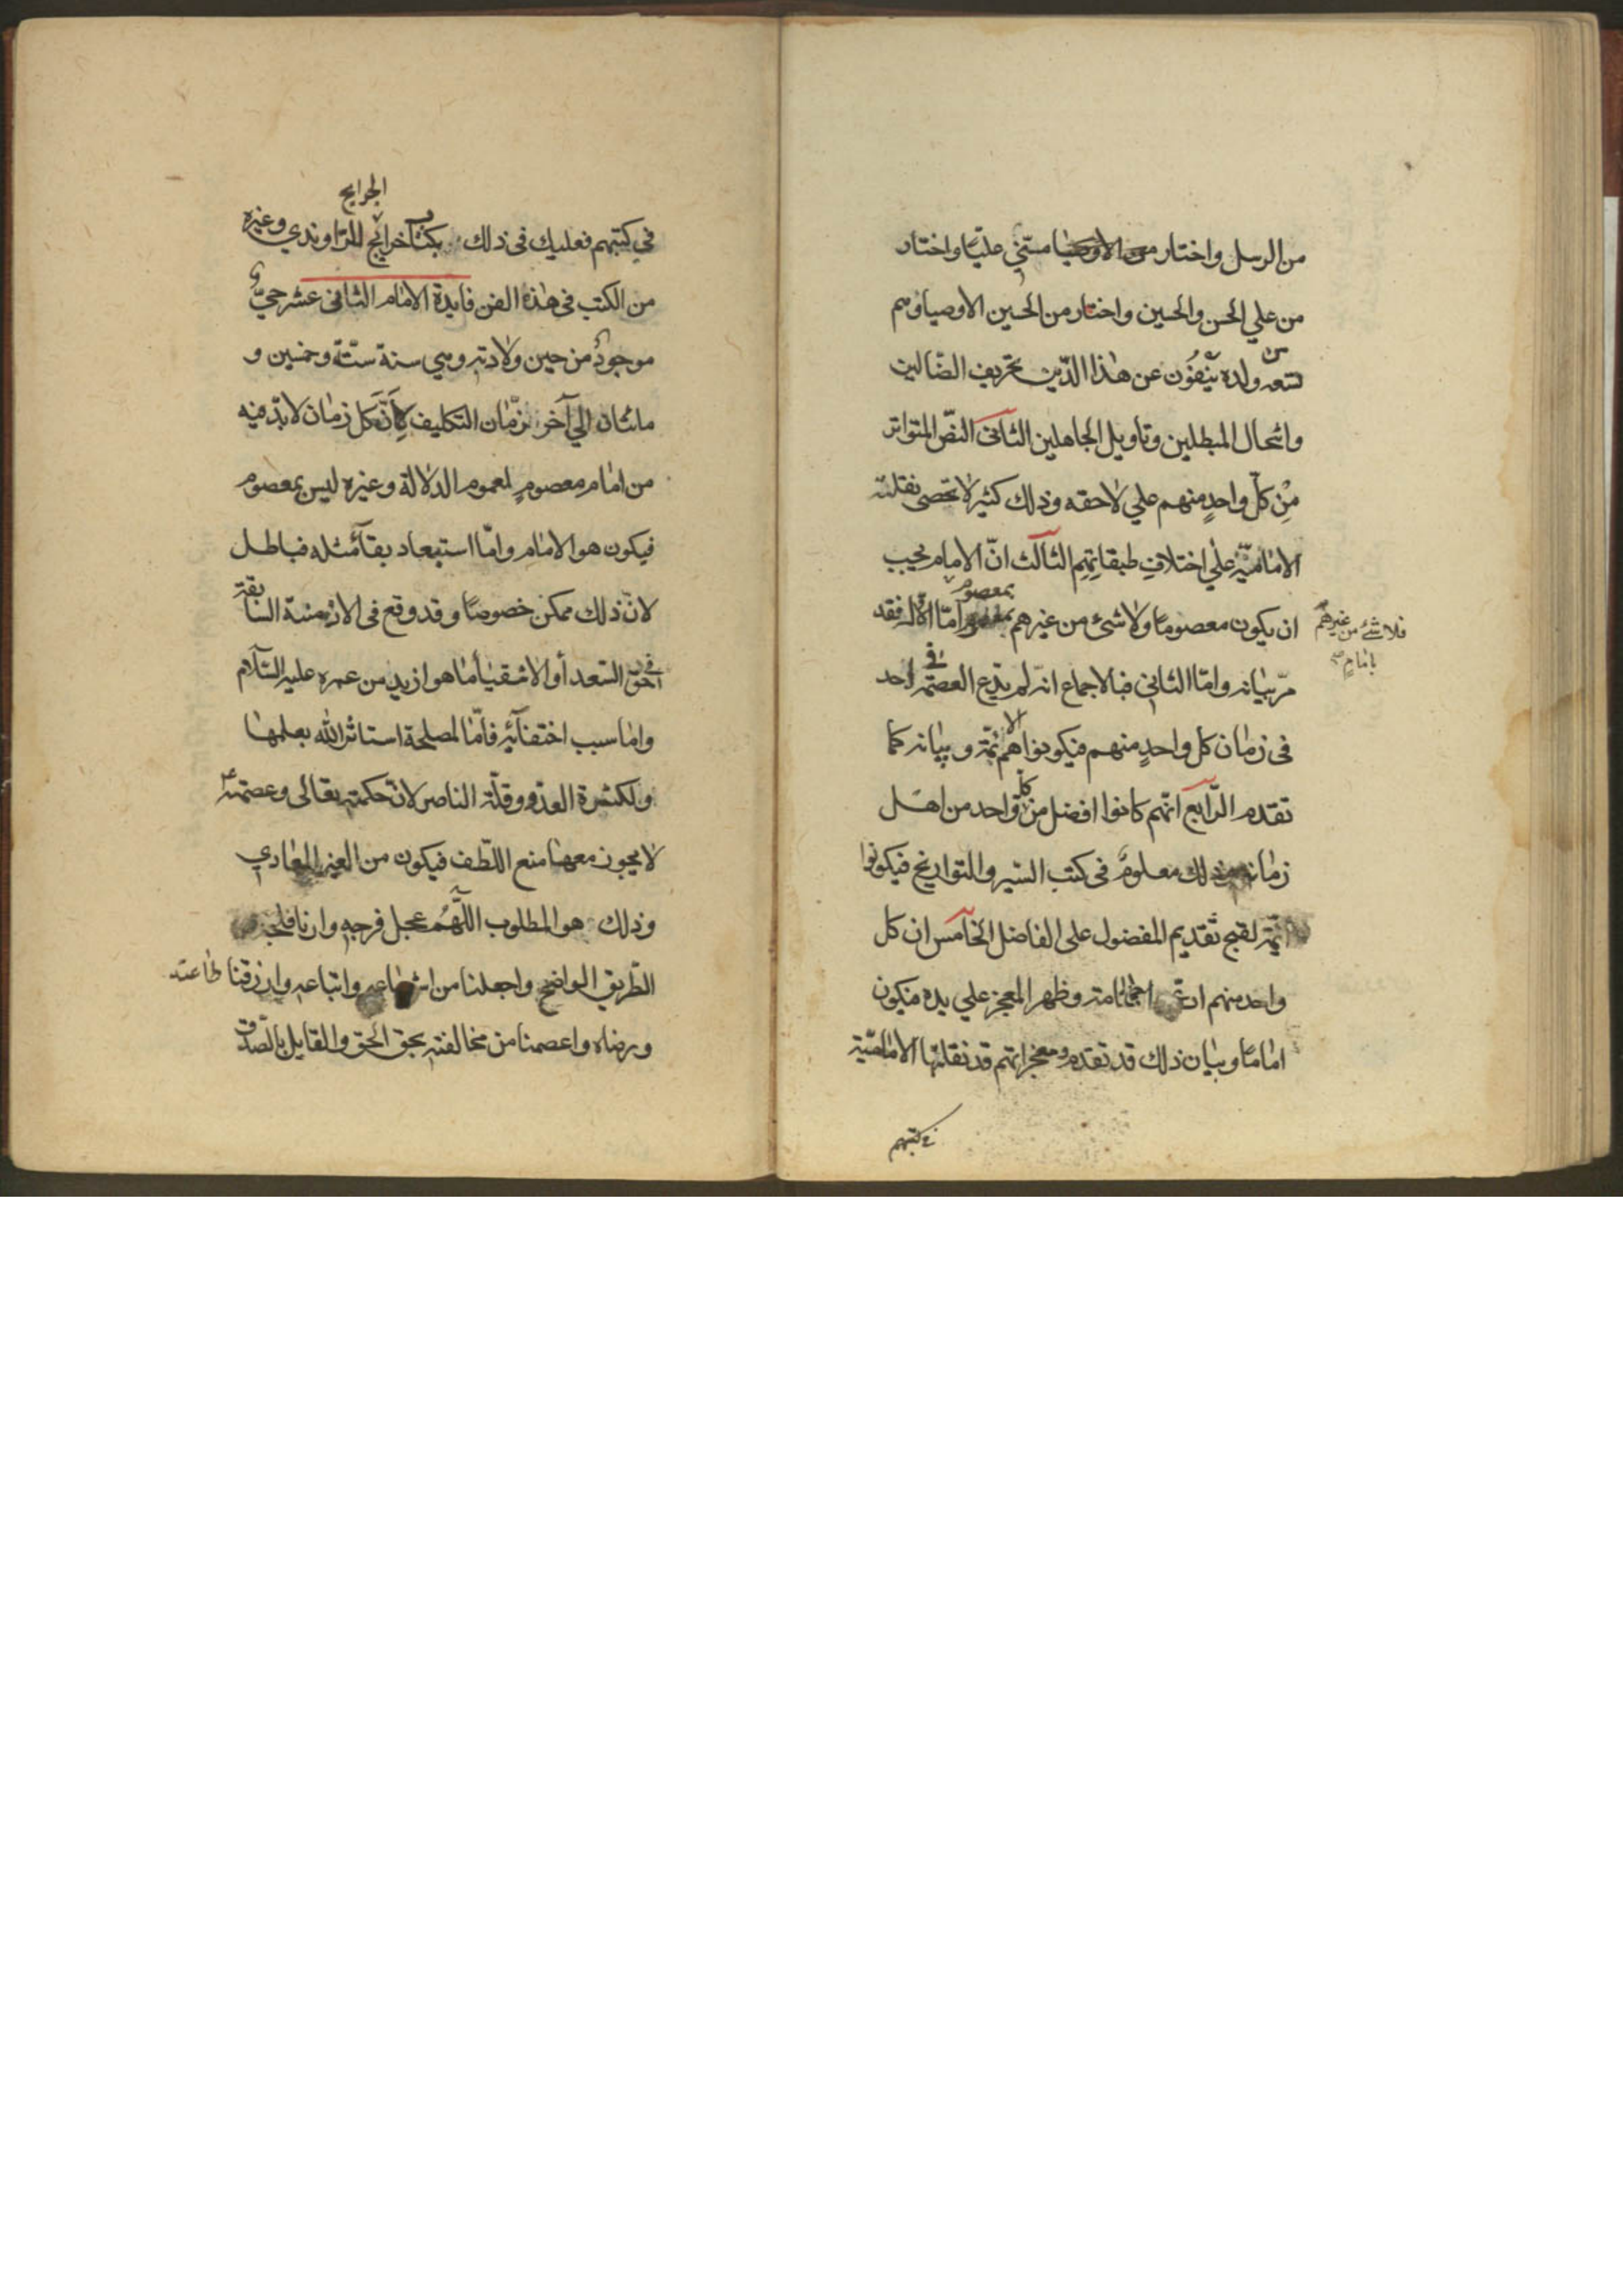 من الرسل واختار منى عليّا واختار
من علي الحسن والحسين واختار من الحسين الاوصيا وهم
تسعه من ولده ينفون عن هذا الدّين تحريف الضّالين
وانتحال المبطلين وتأويل الجاهلين الثانى النصّ المتواتر
مِنْ كلّ واحدٍ منهم علي لاحقه وذلك كثير لا تحصى نقلته
الاماميّة علي اختلافِ طبقاتِهِم الثالث انّ الامام يجب
ان يكون معصومًا ولا شئ من غيرهم بمعصوم امّا الاوّل فقد
فلا شئ من غيرهم
بامامٍ
مرّ بيانه وامّا الثاني فبالاجماع انّه لم يدّع العصمة في احد
فى زمان كل واحدٍ منهم فيكونوا هم الائمّة وبيانه كما
تقدم الرّابع انّهم كانوا افضل من كلّ واحد من اهل
زمانه وذلك معلومٌ فى كتب السّير والتواريخ فيكونوا
ائمّة لقبح تقديم المفضول على الفاضل الخامس ان كل
واحد منهم ادّعى الامامة وظهر المعجز علي يده فيكون
امامًا وبيان ذلك قد تقدم ومعجزاتهم قد نقلتها الاماميّة
في كتبهم
الجرايح
في كتبهم فعليك فى ذلك بكتاب خرايج للرّاوندي وغيره
من الكتب فى هذا الفن فايدة الامام الثانى عشر حيّ
موجودٌ من حين ولادته وهي سنة ستّة وخمسين و
مائتان الي آخر زمان التكليف لِأَنَّ كل زمان لابدّ فيه
من امام معصومٍ لعموم الدلالة وغيره ليس بمعصوم
فيكون هو الامام وامّا استبعاد بقآء مثله فباطل
لانّ ذلك ممكن خصوصًا وقد وقع فى الازمنة السّابقة
في حقّ السّعدآ والاشقيا ما هو ازيد من عمره عليه السّلام
واما سبب اختفآئه فامّا لمصلحة استاثر الله بعلمها
ولكثرة العدوّ وقلّة الناصر لانّ حكمته تعالى وعصمته عم
لا يجوز معها منع اللّطف فيكون من الغير المعادي
وذلك هو المطلوب اللّهُمَّ عجل فرجه وارنا فلجه
الطّريق الواضح واجعلنا من واتباعه وارزقنا طاعته
ورضاه واعصمنا من مخالفته بحق الحق والقايل بالصّدق